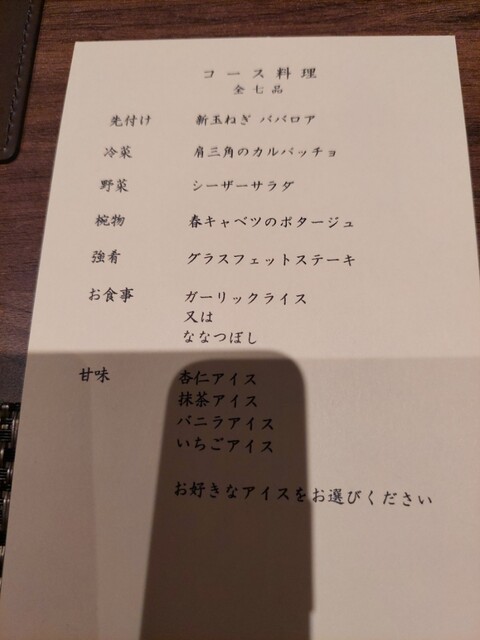 コース料理
全七品
先付け 新玉ねぎ ババロア
冷菜 肩三角のカルパッチョ
野菜 シーザーサラダ
椀物 春キャベツのポタージュ
強肴 グラスフェットステーキ
お食事 ガーリックライス
又は
ななつぼし
甘味 杏仁アイス
抹茶アイス
バニラアイス
いちごアイス
お好きなアイスをお選びください